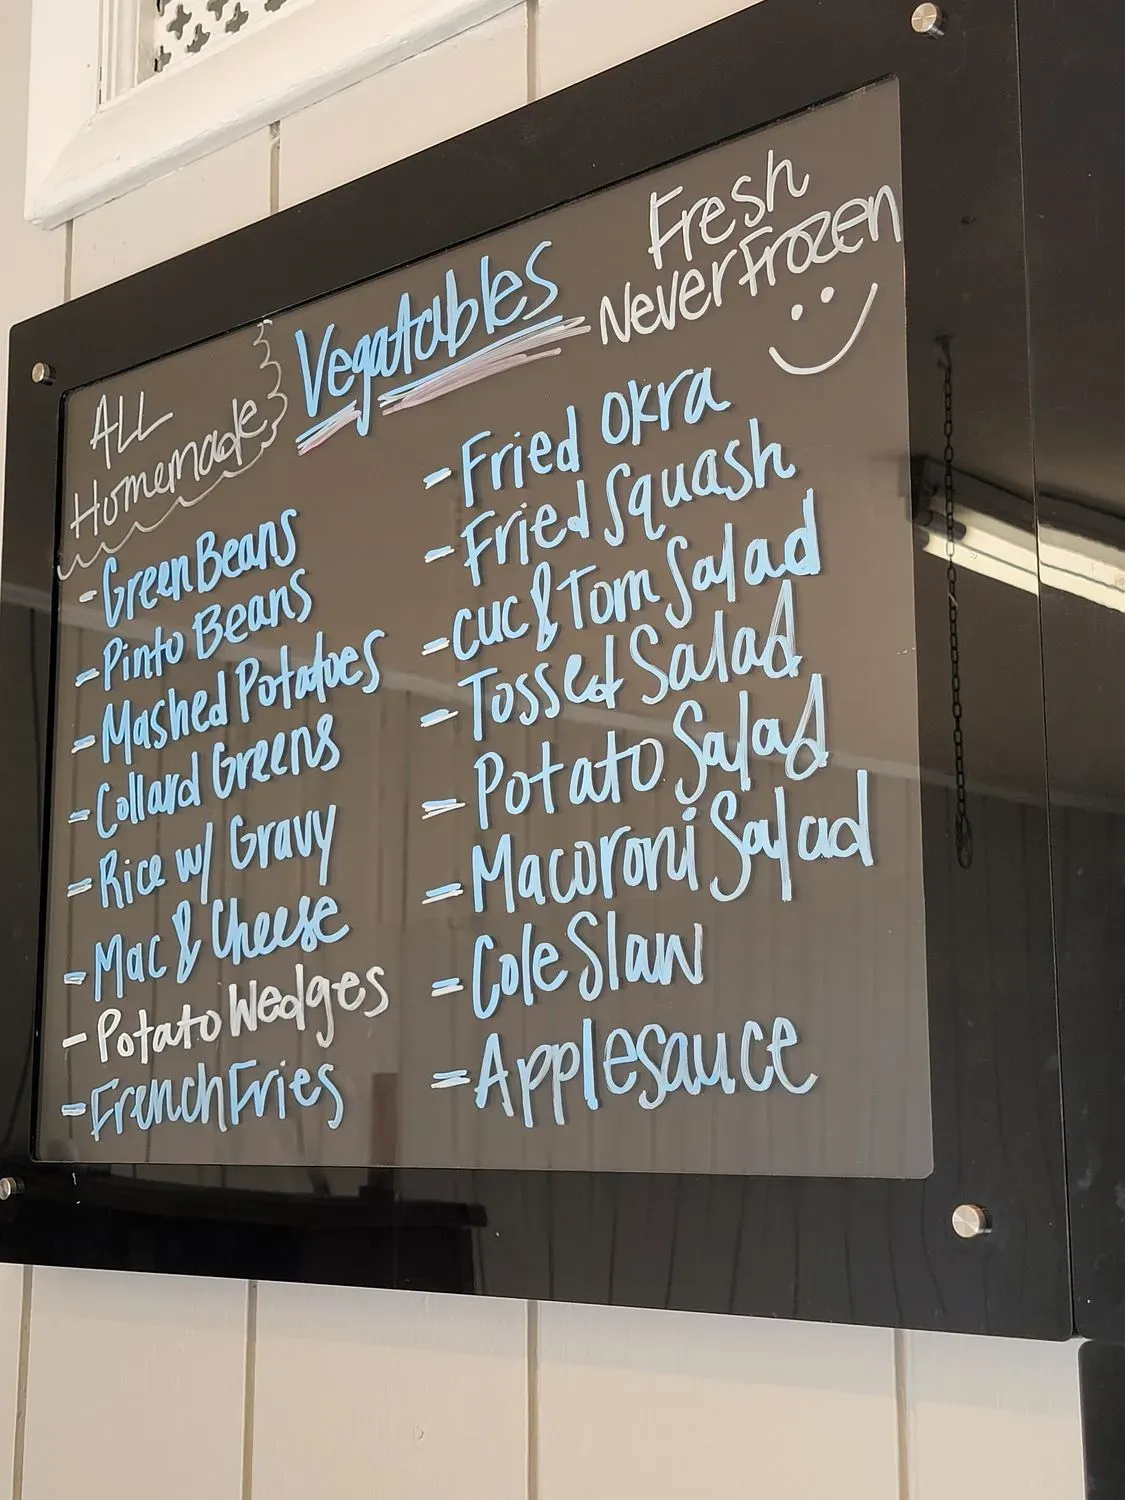 ALL
Homemade
Vegatables
Fresh
Never Frozen
- Green Beans
- Pinto Beans
- Mashed Potatoes
- Collard Greens
- Rice w/ Gravy
- Mac & Cheese
- Potato Wedges
- French Fries
- Fried Okra
- Fried Squash
- Cuc & Tom Salad
- Tossed Salad
- Potato Salad
- Macoroni Salad
- Cole Slaw
- Applesauce